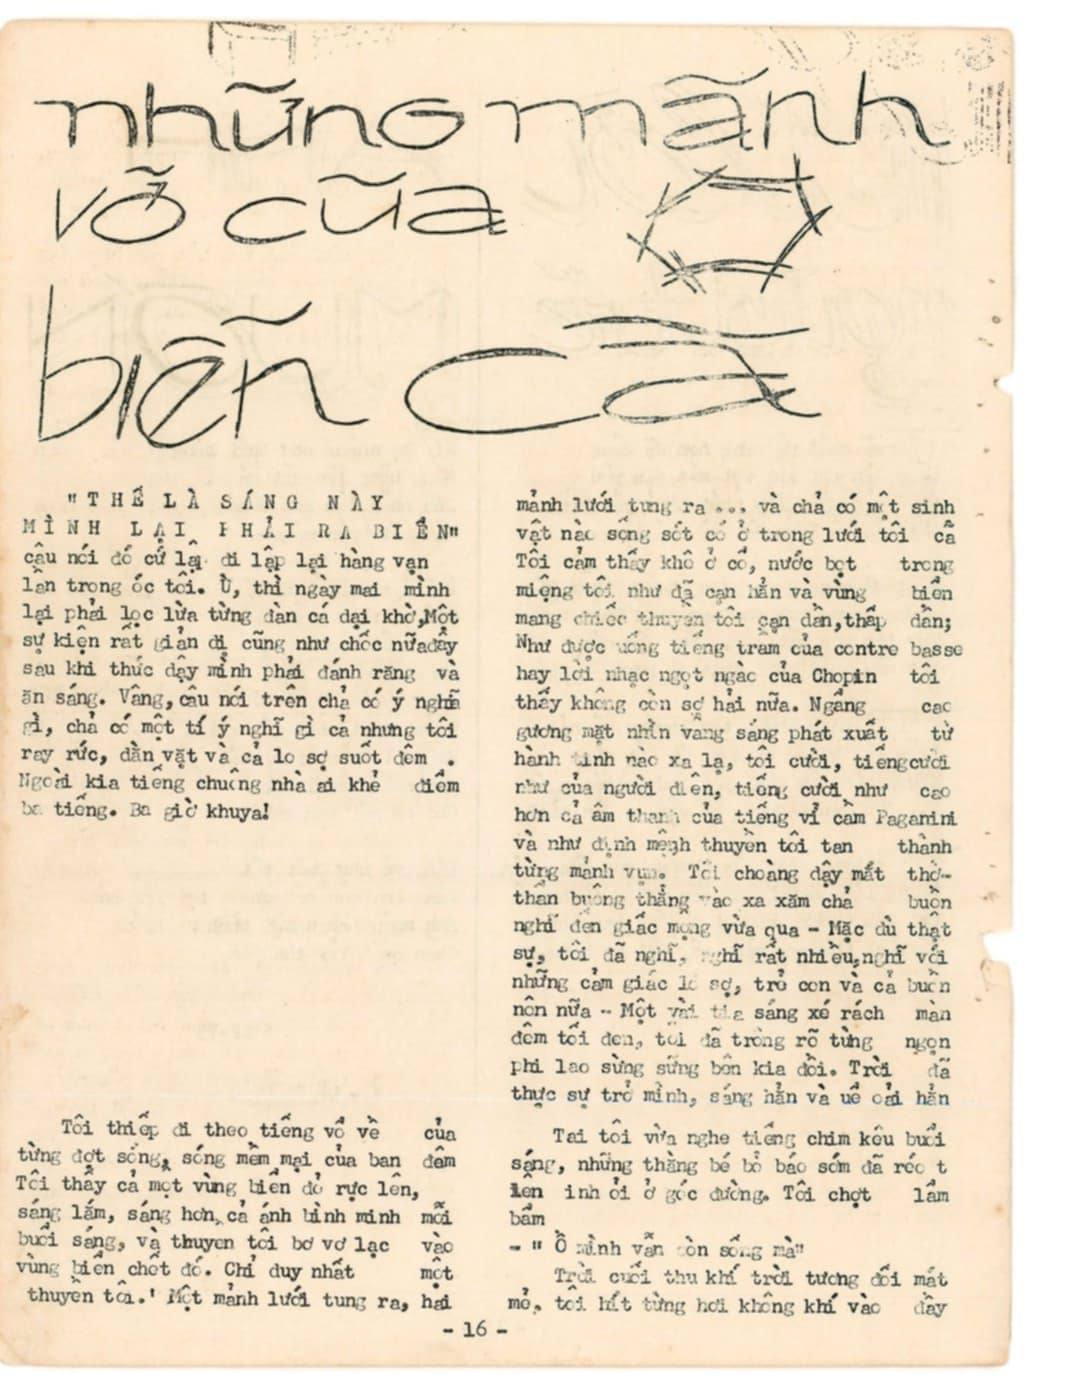 những mãnh
vỡ của
biển cã
"THẾ LÀ SÁNG NÀY
MÌNH LẠI PHẢI RA BIỂN"
câu nói đó cứ lập đi lập lại hàng vạn
lần trong óc tôi. Ừ, thì ngày mai mình
lại phải lọc lừa từng đàn cá dại khờ,Một
sự kiện rất giản dị cũng như chốc nữađây
sau khi thức dậy mình phải đánh răng và
ăn sáng. Vâng,câu nói trên chả có ý nghĩa
gì, chả có một tí ý nghĩ gì cả nhưng tôi
ray rứt, dằn vặt và cả lo sợ suốt đêm .
Ngoài kia tiếng chuông nhà ai khẻ điểm
ba tiếng. Ba giờ khuya!
Tôi thiếp đi theo tiếng vổ về của
từng đợt sóng, sóng mềm mại của ban đêm
Tôi thấy cả một vùng biển đỏ rực lên,
sáng lắm, sáng hơn cả ánh bình minh mỗi
buổi sáng, và thuyen tôi bơ vơ lạc vào
vùng biển chết đó. Chỉ duy nhất một
thuyền tôi.' Một mảnh lưới tung ra, hai
mảnh lưới tung ra ... và chả có một sinh
vật nào sống sót có ở trong lưới tôi cã
Tôi cảm thấy khô ở cổ, nước bọt trong
miệng tôi như đã cạn hẳn và vùng biển
mang chiếc thuyền tôi cạn dần,thấp dần;
Như được uống tiếng trầm của contre basse
hay lời nhạc ngọt ngào của Chopin tôi
thấy không còn sợ hải nữa. Ngẩng cao
gương mặt nhìn vang sáng phát xuất từ
hành tinh nào xa lạ, tôi cười, tiếngcười
như của người điên, tiếng cười như cao
hơn cả âm thanh của tiếng vỉ cầm Paganini
và như định mệnh thuyền tôi tan thành
từng mảnh vụn. Tôi choàng dậy mắt thờ-
thẩn buông thẳng vào xa xăm chả buồn
nghĩ đến giấc mộng vừa qua - Mặc dù thật
sự, tôi đã nghĩ, nghĩ rất nhiều,nghĩ với
những cảm giác lo sợ, trẻ con và cả buồn
nôn nữa - Một vài tia sáng xé rách màn
đêm tối đen, tôi đã trông rõ từng ngọn
phi lao sừng sững bên kia đồi. Trời đã
thực sự trở mình, sáng hẳn và uể oải hẳn
Tai tôi vừa nghe tiếng chim kêu buổi
sáng, những thằng bé bỏ báo sớm đã réo t
lên inh ỏi ở góc đường. Tôi chợt lẩm
bẩm
- " Ồ mình vẫn còn sống mà"
Trời cuối thu khí trời tương đối mát
mẻ, tôi hít từng hơi không khí vào đầy
- 16 -